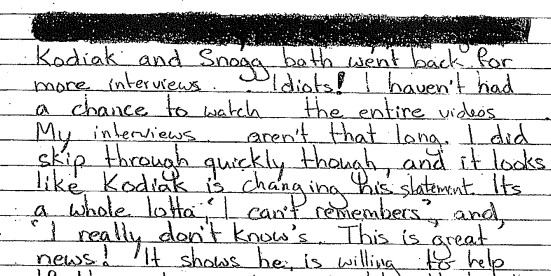 Kodiak and Snogg both went back for
more interviews. Idiots! I haven't had
a chance to watch the entire videos.
My interviews aren't that long. I did
skip through quickly though, and it looks
like Kodiak is changing his statement. Its
a whole lotta "I can't remembers", and,
"I really don't know's. This is great
news! It shows he is willing to help